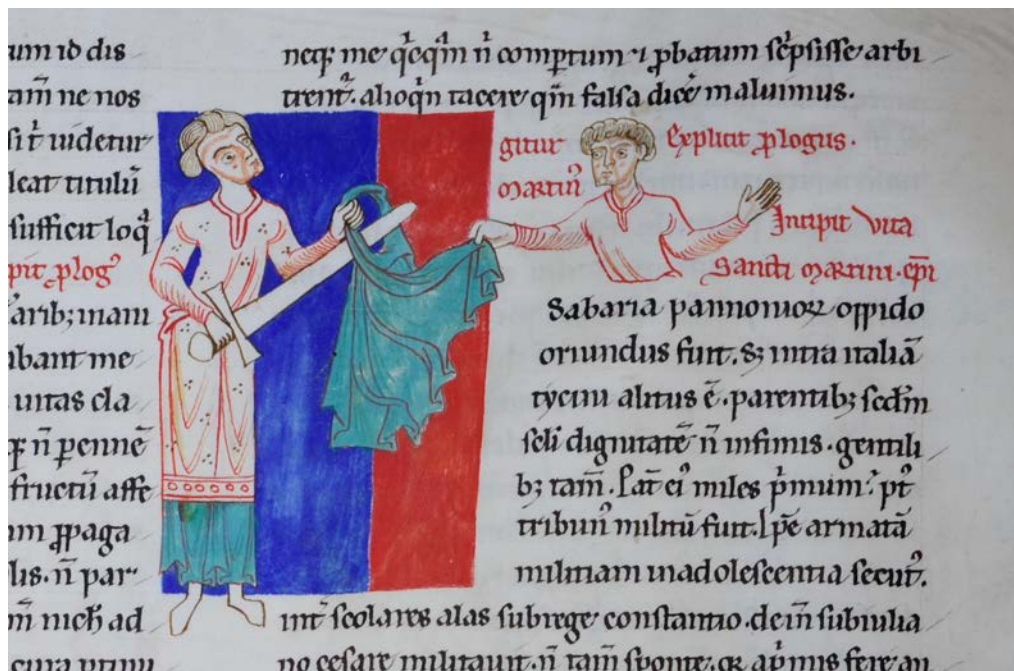 um id dis
tam̄ ne nos
si t̉ uidetur
leat titulū
sufficit loqͣ
pit ꝓlogꝰ
arib; mani
abant me
uitas cla
n̄ ꝑennē
fructū affe
am ꝓpaga
lis. n̄ par
m̄ nich̄ ad
neq; me qͥcqͣm n̄ comꝑtum ⁊ ꝓbatum sc̄psisse arbi
trent᷑. alioqͥn tacere qͣm falsa dice᷑ maluimus.
gitur Explicit ꝓlogus.
martinꝰ
Incipit vita
Sancti martini. ep̄i
Sabaria pannonioꝝ oppido
oriundus fuit. s; intra italiā
tycini alitus ē. parentib; scd̄m
seli dignitatē n̄ infimis. gentili
b; tam̄. Pat̄ eiꝰ miles pͥmum. pꝰt
tribunꝰ militū fuit. Ip̄e armatā
militiam inadolescentia secutꝰ.
int̄ scolares alas subrege constantio. dein̄ subiulia
no cesare militauit. n̄ tam̄ sponte. qꝛ apͥmis fere an